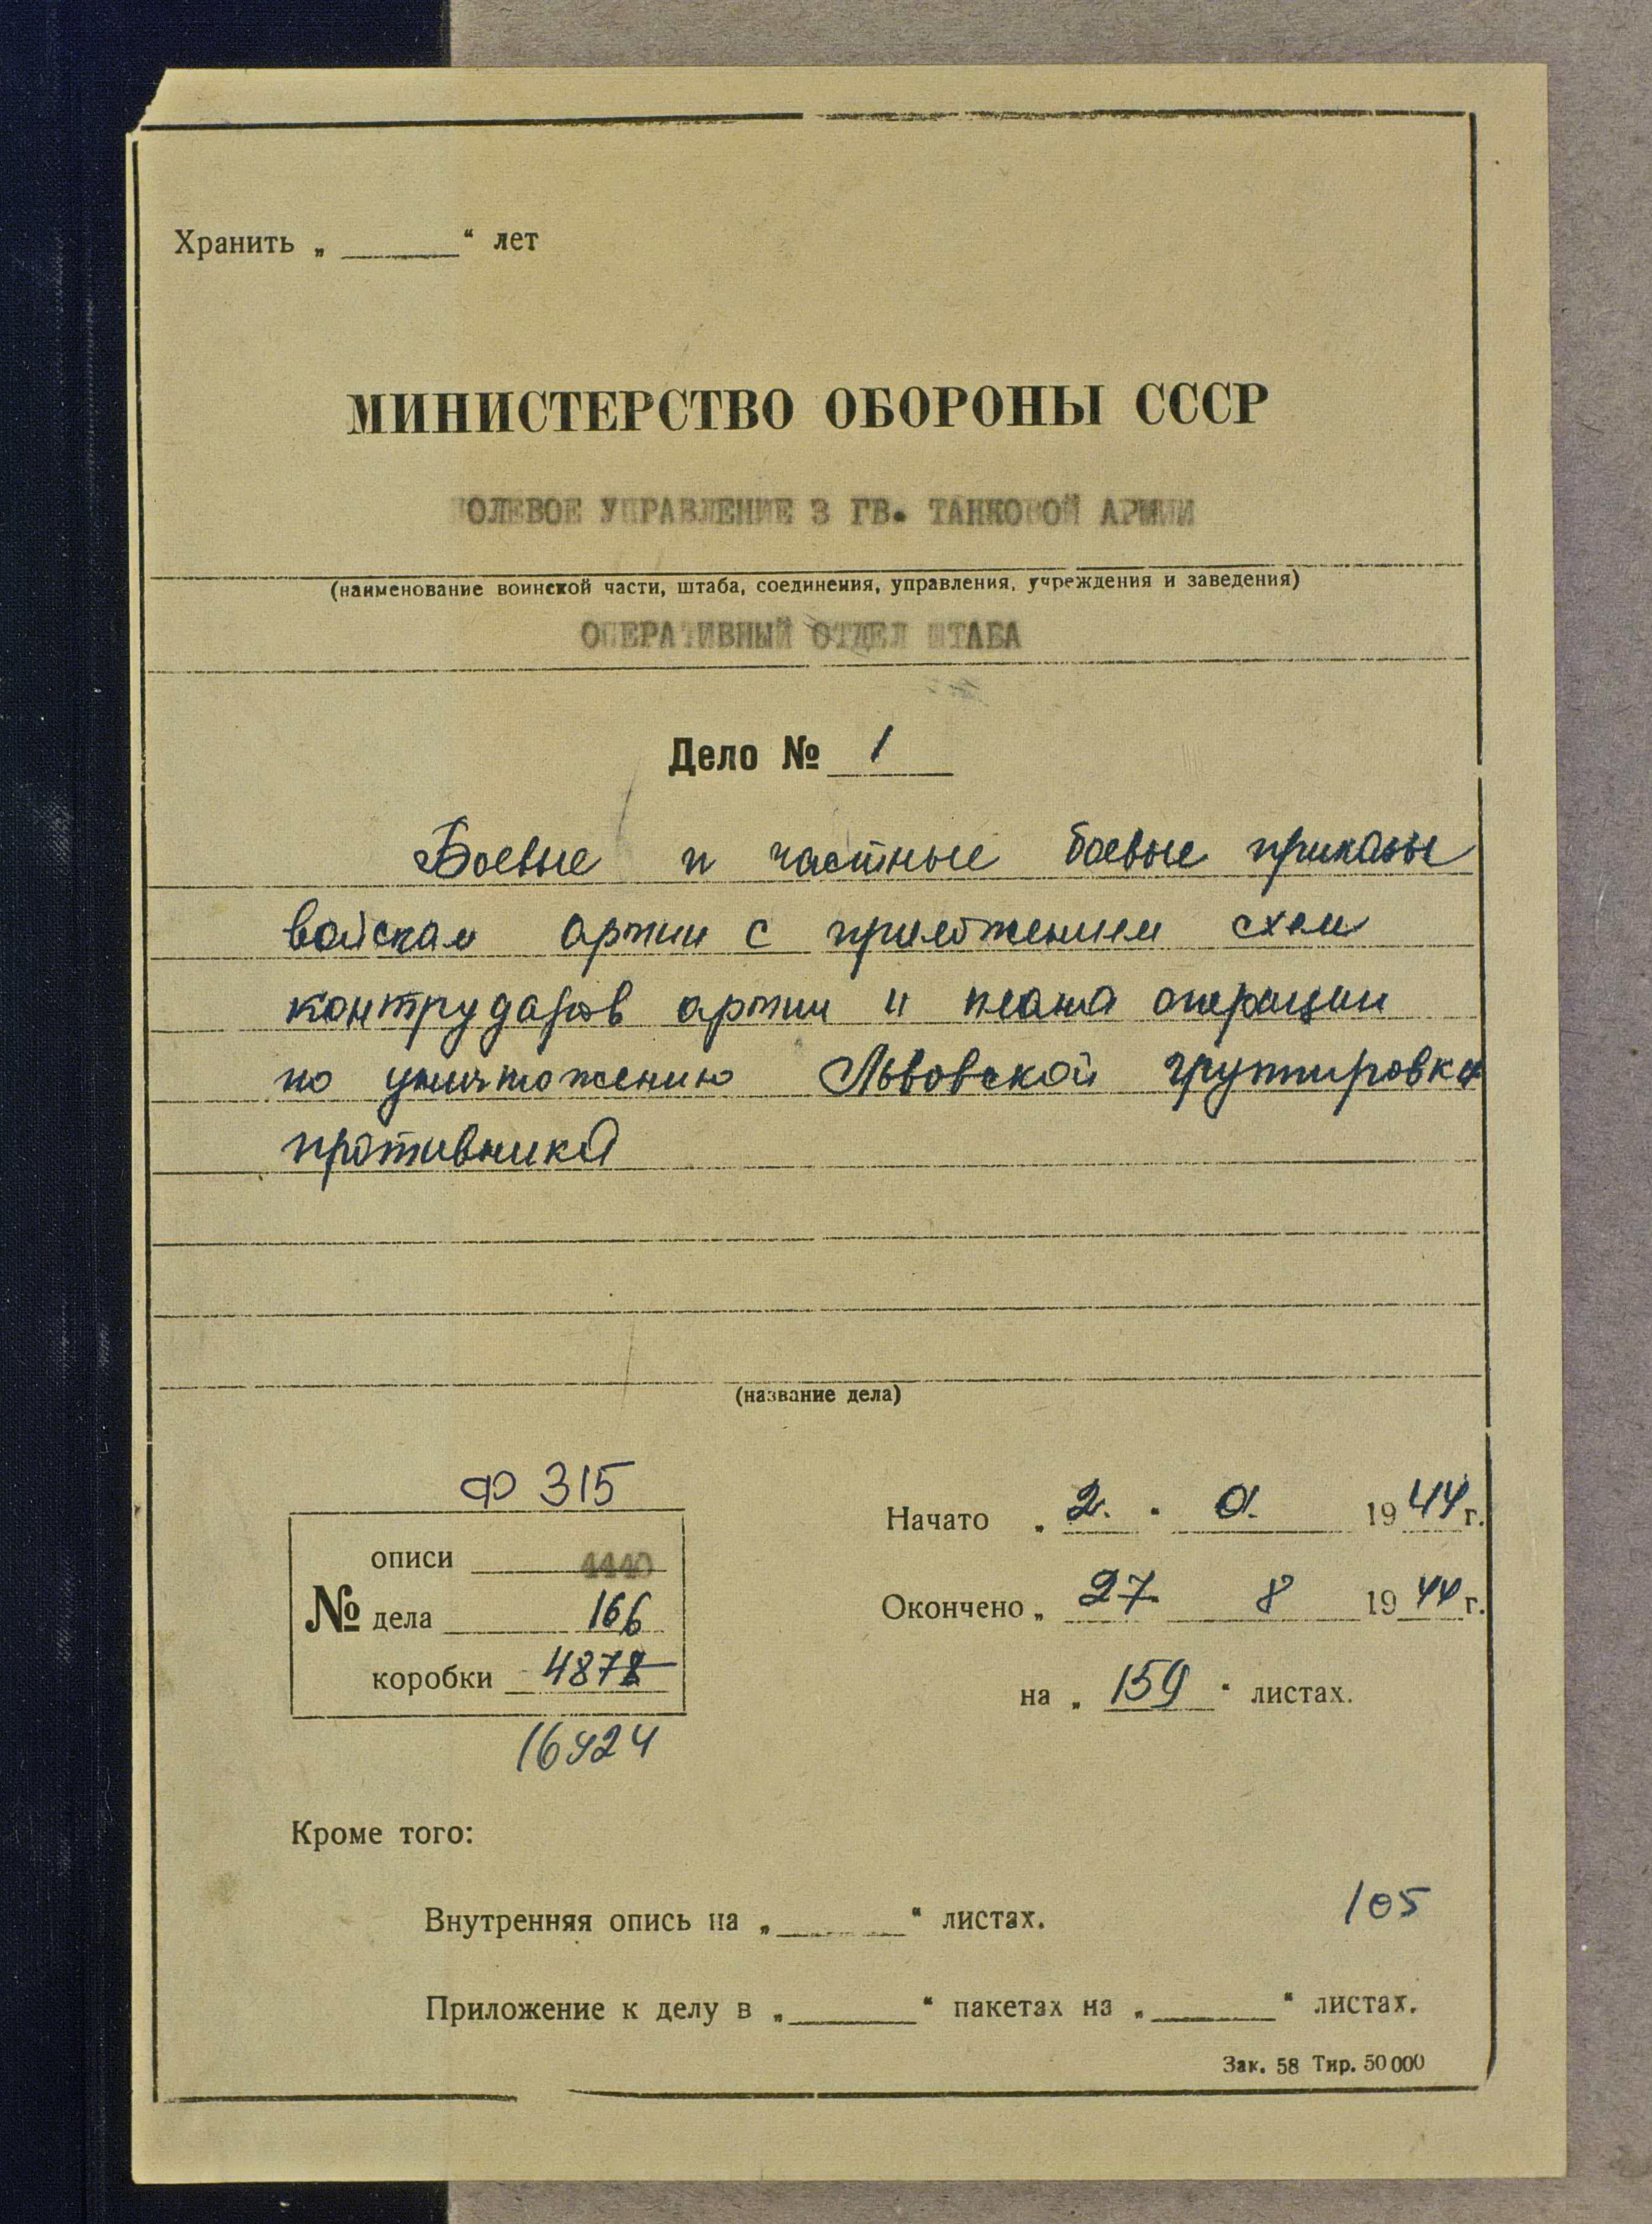 Хранить „ “ лет
МИНИСТЕРСТВО ОБОРОНЫ СССР
ПОЛЕВОЕ УПРАВЛЕНИЕ 3 ГВ. ТАНКОВОЙ АРМИИ
(наименование воинской части, штаба, соединения, управления, учреждения и заведения)
ОПЕРАТИВНЫЙ ОТДЕЛ ШТАБА
Дело № 1
Боевые и частные боевые приказы
войскам армии с приложением схем
контрударов армии и плана операции
по уничтожению Львовской группировки
противника
(название дела)
Ф 315
описи 4440
№ дела 166
коробки 4878
16424
Начато „ 2. “ 1944 г.
Окончено „ 27. 8 1944 г.
на „ 159 “ листах.
Кроме того:
105
Внутренняя опись на „ “ листах.
Приложение к делу в „ “ пакетах на „ “ листах.
Зак. 58 Тир. 50 000